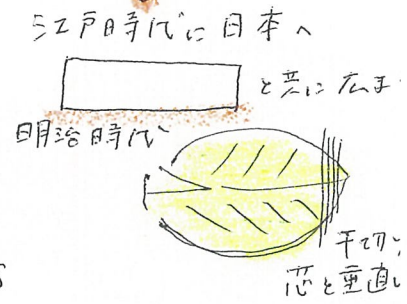 江戸時代に日本へ
と共に広ま
明治時代
千切り
芯と垂直に